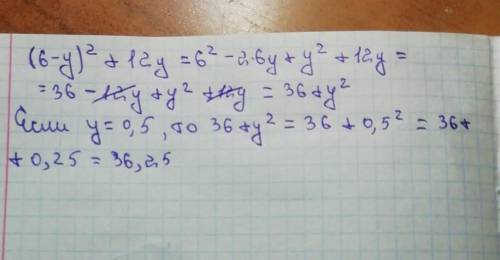 (6-y)² + 12y = 6² - 2·6y + y² + 12y =
= 36 - 12y + y² + 12y = 36 + y²
Если y = 0,5, то 36 + y² = 36 + 0,5² = 36 +
+ 0,25 = 36,25